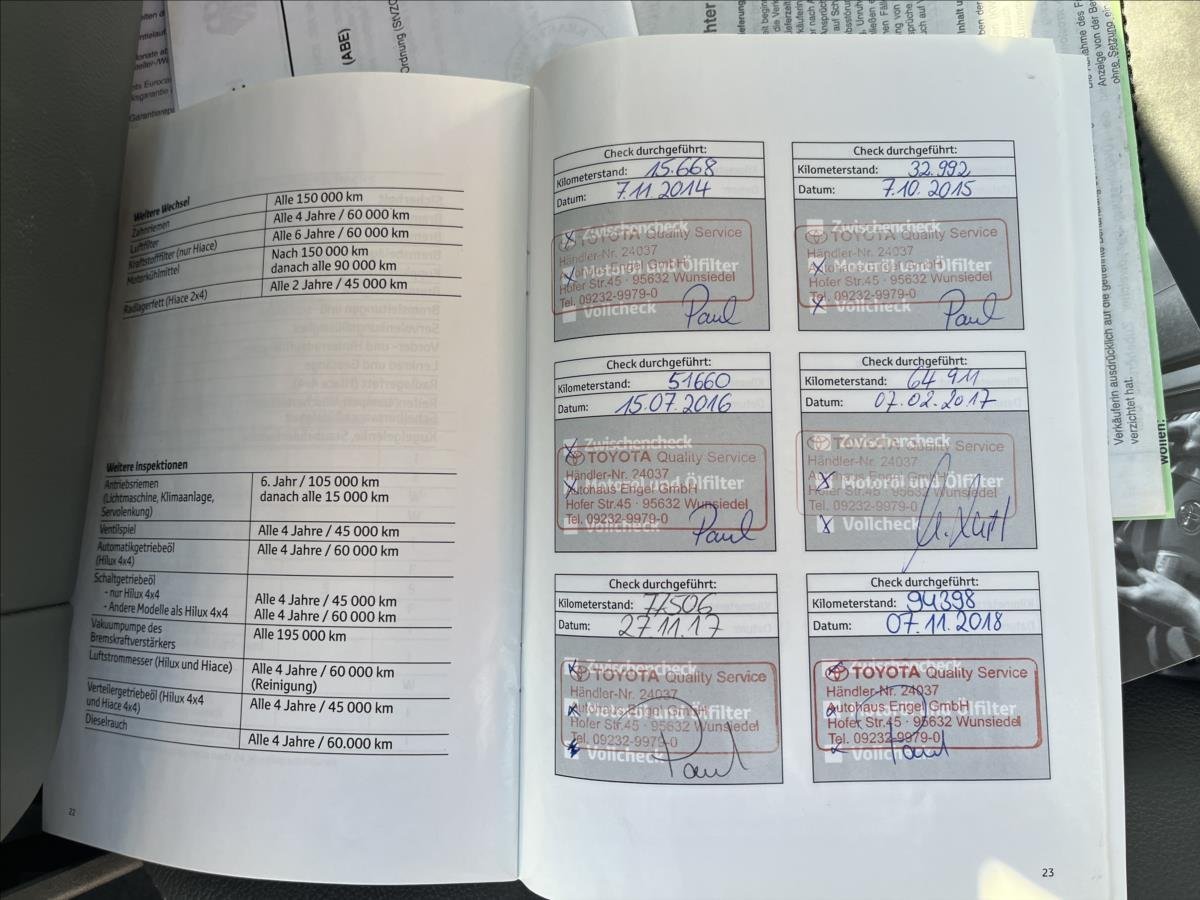 (ABE)
Weitere Wechsel
Zahnriemen
Alle 150 000 km
Luftfilter
Alle 4 Jahre / 60 000 km
Kraftstofffilter (nur Hiace)
Alle 6 Jahre / 60 000 km
Motorkühlmittel
Nach 150 000 km
danach alle 90 000 km
Radlagerfett (Hiace 2x4)
Alle 2 Jahre / 45 000 km
Weitere Inspektionen
Antriebsriemen
(Lichtmaschine, Klimaanlage,
Servolenkung)
6. Jahr / 105 000 km
danach alle 15 000 km
Ventilspiel
Alle 4 Jahre / 45 000 km
Automatikgetriebeöl
(Hilux 4x4)
Alle 4 Jahre / 60 000 km
Schaltgetriebeöl
- nur Hilux 4x4
Alle 4 Jahre / 45 000 km
- Andere Modelle als Hilux 4x4
Alle 4 Jahre / 60 000 km
Vakuumpumpe des
Bremskraftverstärkers
Alle 195 000 km
Luftstrommesser (Hilux und Hiace)
Alle 4 Jahre / 60 000 km
(Reinigung)
Verteilergetriebeöl (Hilux 4x4
und Hiace 4x4)
Alle 4 Jahre / 45 000 km
Dieselrauch
Alle 4 Jahre / 60.000 km
22
Check durchgeführt:
Kilometerstand: 15.668
Datum: 7.11.2014
Zwischencheck
TOYOTA Quality Service
Händler-Nr. 24037
Motoröl und Ölfilter
Hofer Str.45 · 95632 Wunsiedel
Tel. 09232-9979-0
Vollcheck
Paul
Check durchgeführt:
Kilometerstand: 32.992
Datum: 7.10.2015
Zwischencheck
TOYOTA Quality Service
Händler-Nr. 24037
Motoröl und Ölfilter
Hofer Str.45 · 95632 Wunsiedel
Tel. 09232-9979-0
Vollcheck
Paul
Check durchgeführt:
Kilometerstand: 51660
Datum: 15.07.2016
Zwischencheck
TOYOTA Quality Service
Händler-Nr. 24037
Motoröl und Ölfilter
Autohaus Engel GmbH
Hofer Str.45 · 95632 Wunsiedel
Tel. 09232-9979-0
Paul
Check durchgeführt:
Kilometerstand: 64 911
Datum: 07.02.2017
Zwischencheck
TOYOTA Quality Service
Händler-Nr. 24037
Autohaus Engel GmbH
Motoröl und Ölfilter
Hofer Str.45 · 95632 Wunsiedel
Tel. 09232-9979-0
Vollcheck
Check durchgeführt:
Kilometerstand: 77506
Datum: 27.11.17
Zwischencheck
TOYOTA Quality Service
Händler-Nr. 24037
Autohaus Engel GmbH
Motoröl und Ölfilter
Hofer Str.45 · 95632 Wunsiedel
Tel. 09232-9979-0
Vollcheck
Paul
Check durchgeführt:
Kilometerstand: 94398
Datum: 07.11.2018
Zwischencheck
TOYOTA Quality Service
Händler-Nr. 24037
Autohaus Engel GmbH
Motoröl und Ölfilter
Hofer Str.45 · 95632 Wunsiedel
Tel. 09232-9979-0
Vollcheck
Paul
23
Verkäuferin ausdrücklich auf die getrennte
verzichtet hat.
wollen.